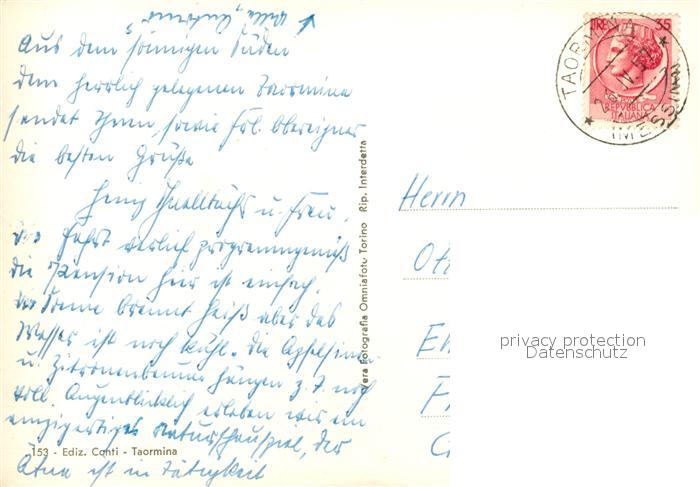 ↑ Villa „Antonio“
Aus dem sonnigen Süden
dem herrlich gelegenen Taormina
sendet Ihnen sowie Frl. Obereigner
die besten Grüße
Heinz u. Frau.
Fahrt verlief programmgemäß
die Pension hier ist einfach.
die Sonne brennt heiß aber das
Wasser ist noch kühl. Die Apfelsinen
u. Zitronenbäume hängen z. T. noch
voll. Augenblicklich erleben wir ein
einzigartiges Naturschauspiel, der
Ätna ist in Tätigkeit
153 - Ediz. Conti - Taormina
Vera Fotografia Omniafoto Torino Rip. Interdetta
LIRE 35
REPVBBLICA
ITALIANA
TAORMINA
MESSINA
Herrn
privacy protection
Datenschutz